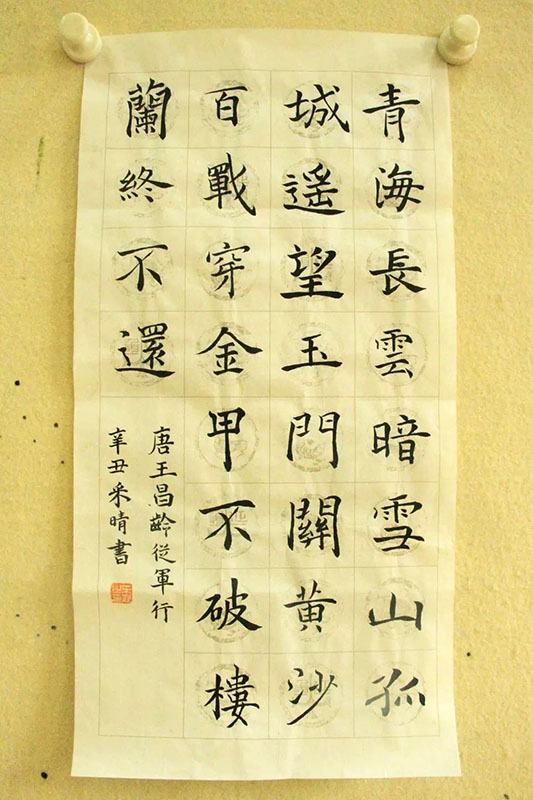 青海長雲暗雪山孤
城遥望玉門關黄沙
百戰穿金甲不破樓
蘭終不還
唐王昌齡從軍行
辛丑采晴書